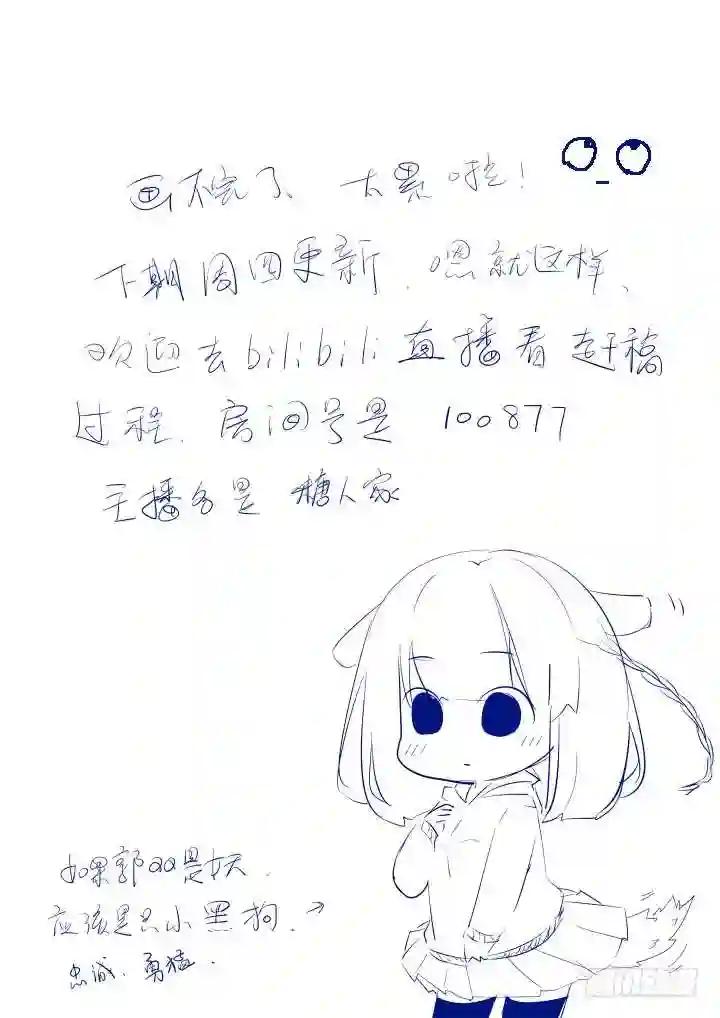 画不完了、太累啦！
下期周四更新．嗯就这样、
欢迎去bilibili直播看赶稿
过程．房间号是 100877
主播名是 糖人家
如果郭QQ是妖．
应该是只小黑狗．
忠诚．勇猛．